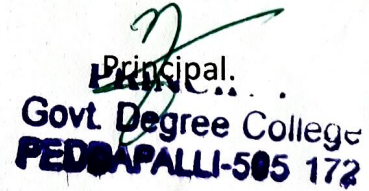 Principal.
Govt. Degree College
PEDDAPALLI-505 172